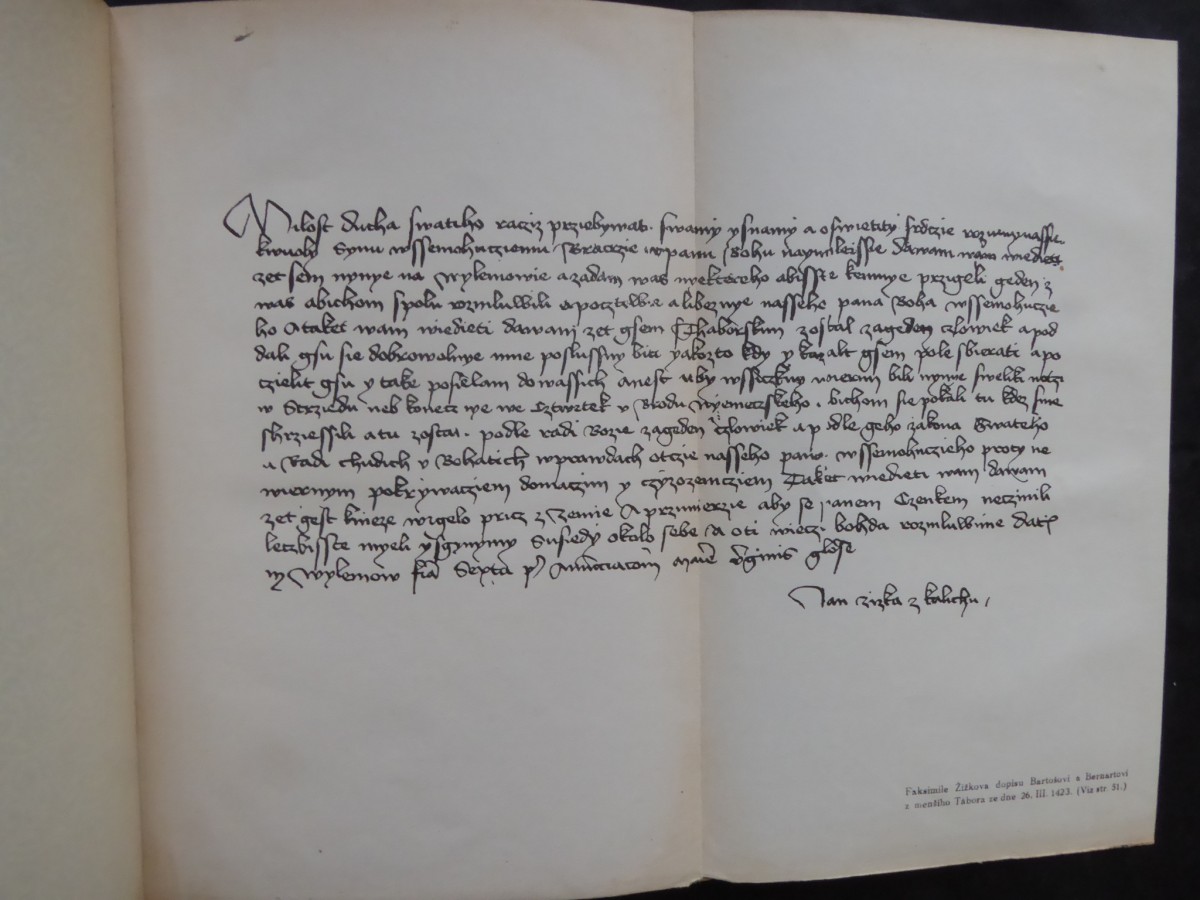 Milost ducha swatiho racziz prziebywati swamy ysnamy a oswietity srdczie rozumy nasse
kwuoly Synu wssemohucziemu Braczie wpanu Bohu naymileissie dawam wam wiedieti
zet sem nynye na Wylemowie a zadam was niektereho abisste kemnye przigeli geden z
was abichom spolu rozmluwili opocztiwe alibeznye nasseho pana Boha wssemohuczie
ho A taket wam wiedieti dawam zet gsem Thaborskim zostal zageden czlowiek a pod
dali gsu sie dobrowolnye mne poslussny biti yakozto kdy y kazalt gsem pole sbierati a po
czielit gsu y take posielam do wassich miest aby wssiczkny wierni bili nynye sweliki moczi
w Strziedu neb konecznye we Cztwrtek v Brodu Nyemeczskeho, bichom sie potkali tu kdez sme
shrziessili a tu zostali podle radi Bozie zageden czlowiek a podle geho zakona Swateho
a Radi chudich y Bohatich wprawdach otczie nasseho pana wssemohuczieho proty ne
wiernym pokrywacziem domaczim y czyzozemcziem Taket wiedieti wam dawam
zet gest knieze wigelo pricz z Zemie A przimierzie aby se panem Czenkem neczinili
leczbisste myeli y gynymy Susiedy okolo sebe A oti wieczi bohda rozmluwime datum
in Wylemow feria Sexta post Annuncciacom Marie virginis gloriose
Jan zizka z kalichu,
Faksimile Žižkova dopisu Bartošovi a Bernartovi
z menšího Tábora ze dne 26. III. 1423. (Viz str. 51.)